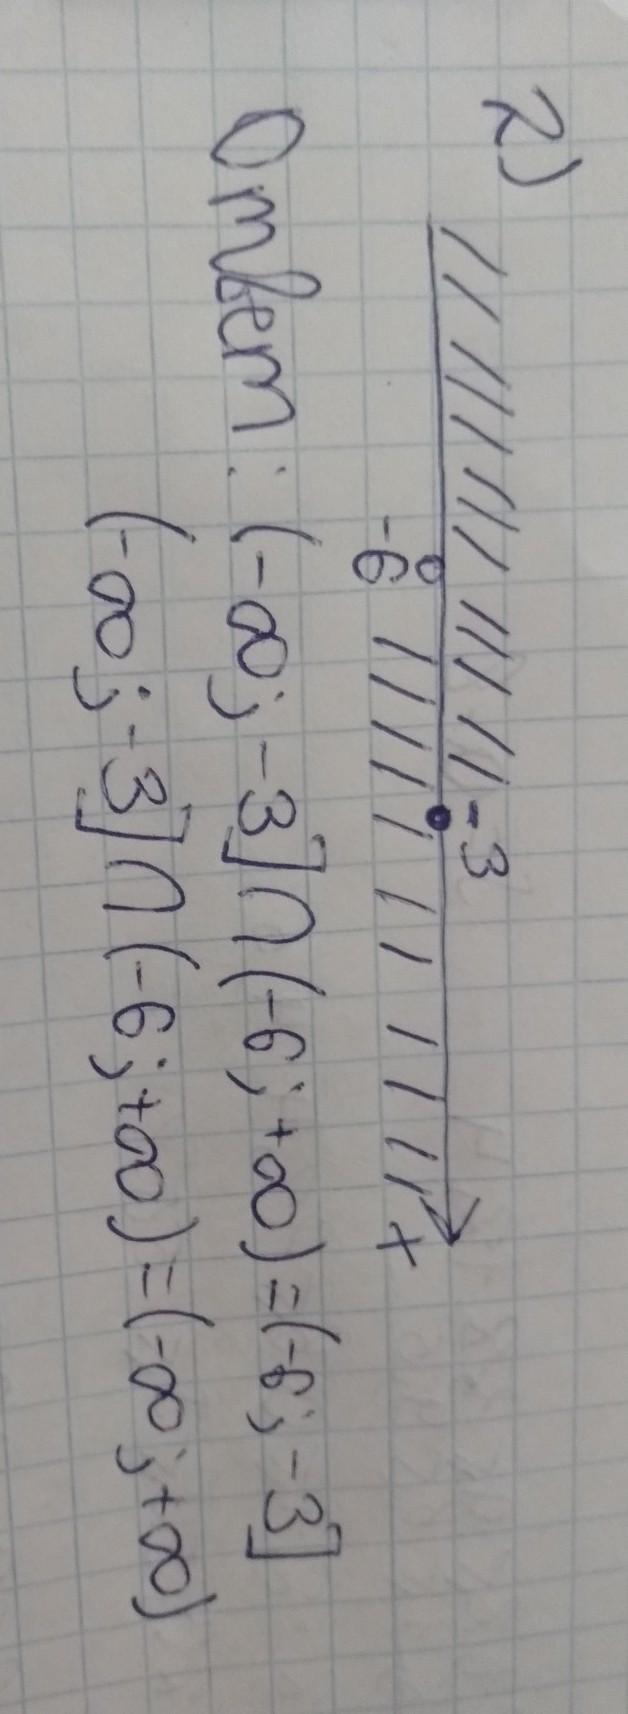 2)
-3
-6
x
Ответ: (-∞; -3] ∩ (-6; +∞) = (-6; -3]
(-∞; -3] ∩ (-6; +∞) = (-∞; +∞)